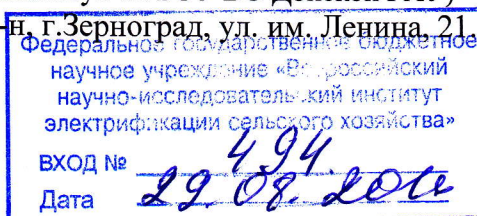 -н, г.Зерноград, ул. им. Ленина, 21.
Федеральное государственное бюджетное
научное учреждение «Всероссийский
научно-исследовательский институт
электрификации сельского хозяйства»
ВХОД № 494
Дата 29.08.